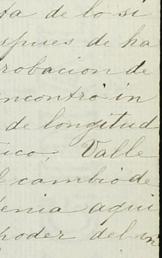 ta de lo si
spues de ha
robacion de
ncontró in
de longitud
ico, Valle
l cambio de
enia aqui
poder del in